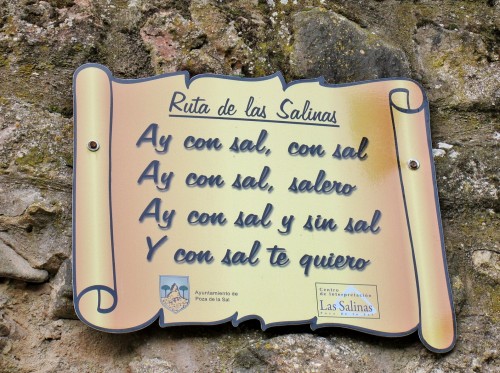 Ruta de las Salinas
Ay con sal, con sal
Ay con sal, salero
Ay con sal y sin sal
Y con sal te quiero
Ayuntamiento de
Poza de la Sal
Centro
de Interpretación
Las Salinas